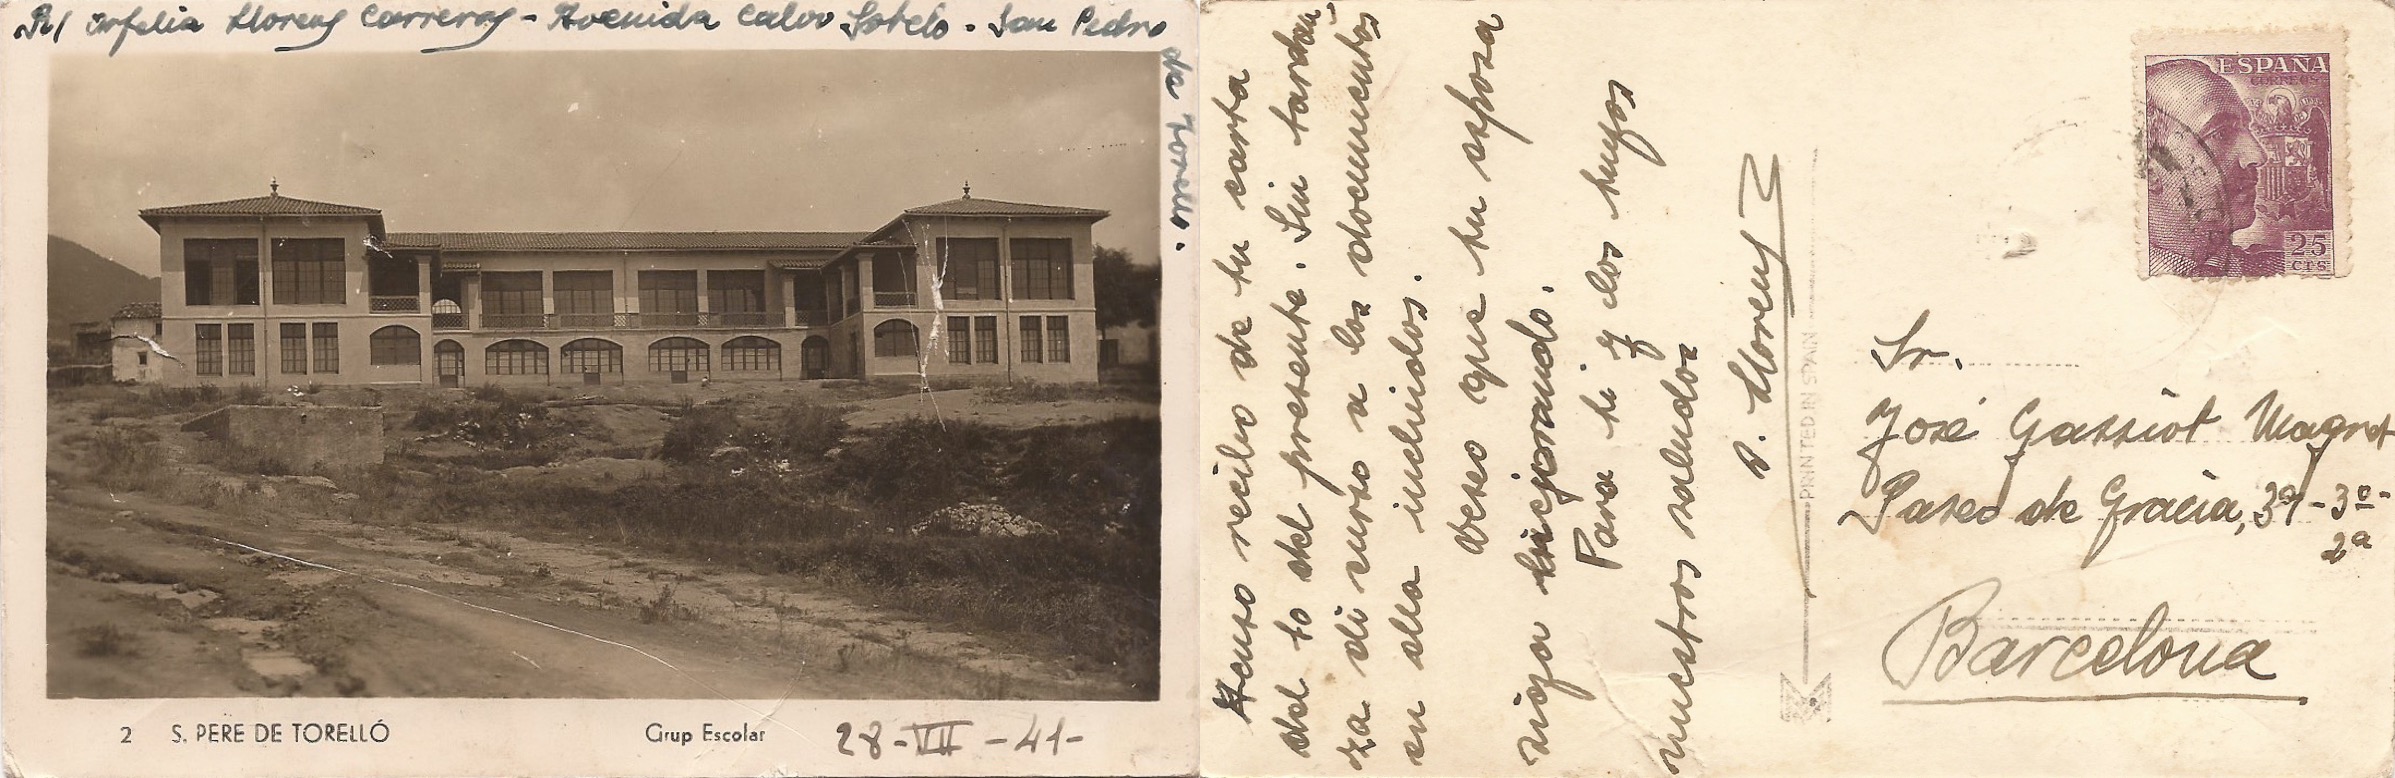 Orfelia Llorens Carreras - Avenida Calvo Sotelo. San Pedro
de Torelló.
2 S. PERE DE TORELLÓ
Grup Escolar
28-VII-41-
Acuso recibo de tu carta
del 10 del presente. Sin tardan-
za di curso a los documentos
en ella incluidos.
Deseo que tu esposa
siga mejorando.
Para ti y los tuyos
nuestros saludos
Llorens
PRINTED IN SPAIN
ESPAÑA
CORREOS
25
CTS
Sr.
José Gassiot Magret
Paseo de Gracia, 39-3º-
2ª
Barcelona